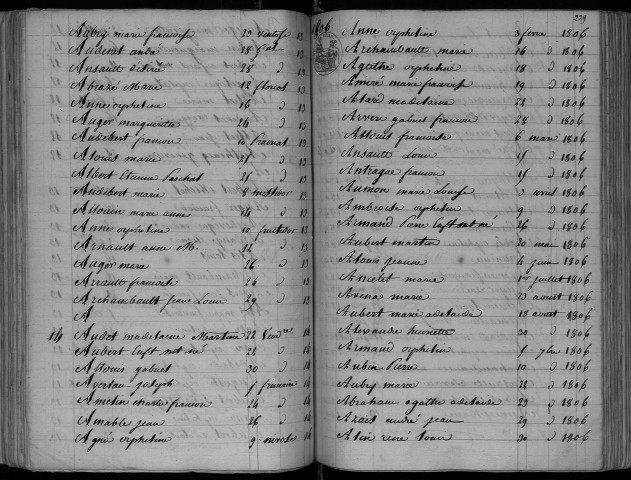 Aubry marie francoise 23 ventose 13
Audenet andré 28 13
Ansault désiré 28 13
Abraze Marie 12 floreal 13
Anne orpheline 16 d 13
Auger marguerite 24 d 13
Audebert francoise 10 prairial 13
Alouis marie 25 d 13
Albert Etienne Paschal 25 d 13
Audebert marie 8 messidor 13
Allouin marie anne 14 d 13
Anne orpheline 10 fructidor 13
Arnault anne M. 22 d 13
Auger mara 26 d 13
Arrault francois 26 d 13
Archambault jean Louis 29 d 13
A
14 Audet madelaine Martine 22 vendre 14
Aubert 22 d 14
Allouis gabriel 30 d 14
Averlau joseph 5 frimaire 14
Amelin charles francois 24 d 14
Amable jean 26 d 14
Agné orpheline 9 nivose 14
229
1806 Anne orpheline 3 fevrier 1806
Archambault marie 16 d 1806
Agathe orpheline 18 d 1806
André marie francoise 19 d 1806
Alard madelaine 22 d 1806
Arven gabriel francois 28 d 1806
Allouis francoise 6 mars 1806
Ansault Louis 15 d 1806
Antrague francois 15 d 1806
Aumon marie Louise 3 avril 1806
Ambroise orphelin 9 d 1806
Armand Pierre 26 d 1806
Aubert martin 20 mai 1806
Alouis jeanne 4 juin 1806
Ancelet marie 1er juillet 1806
Arena mara 13 aoust 1806
Aubert marie adelaide 18 aoust 1806
Alexandre henriette 30 d 1806
Armand orphelin 5 7bre 1806
Aubin Pierre 10 d 1806
Aubry mara 22 d 1806
Abraham agathe adelaide 23 d 1806
Azais andré jean 29 d 1806
Alin rené louis 30 d 1806